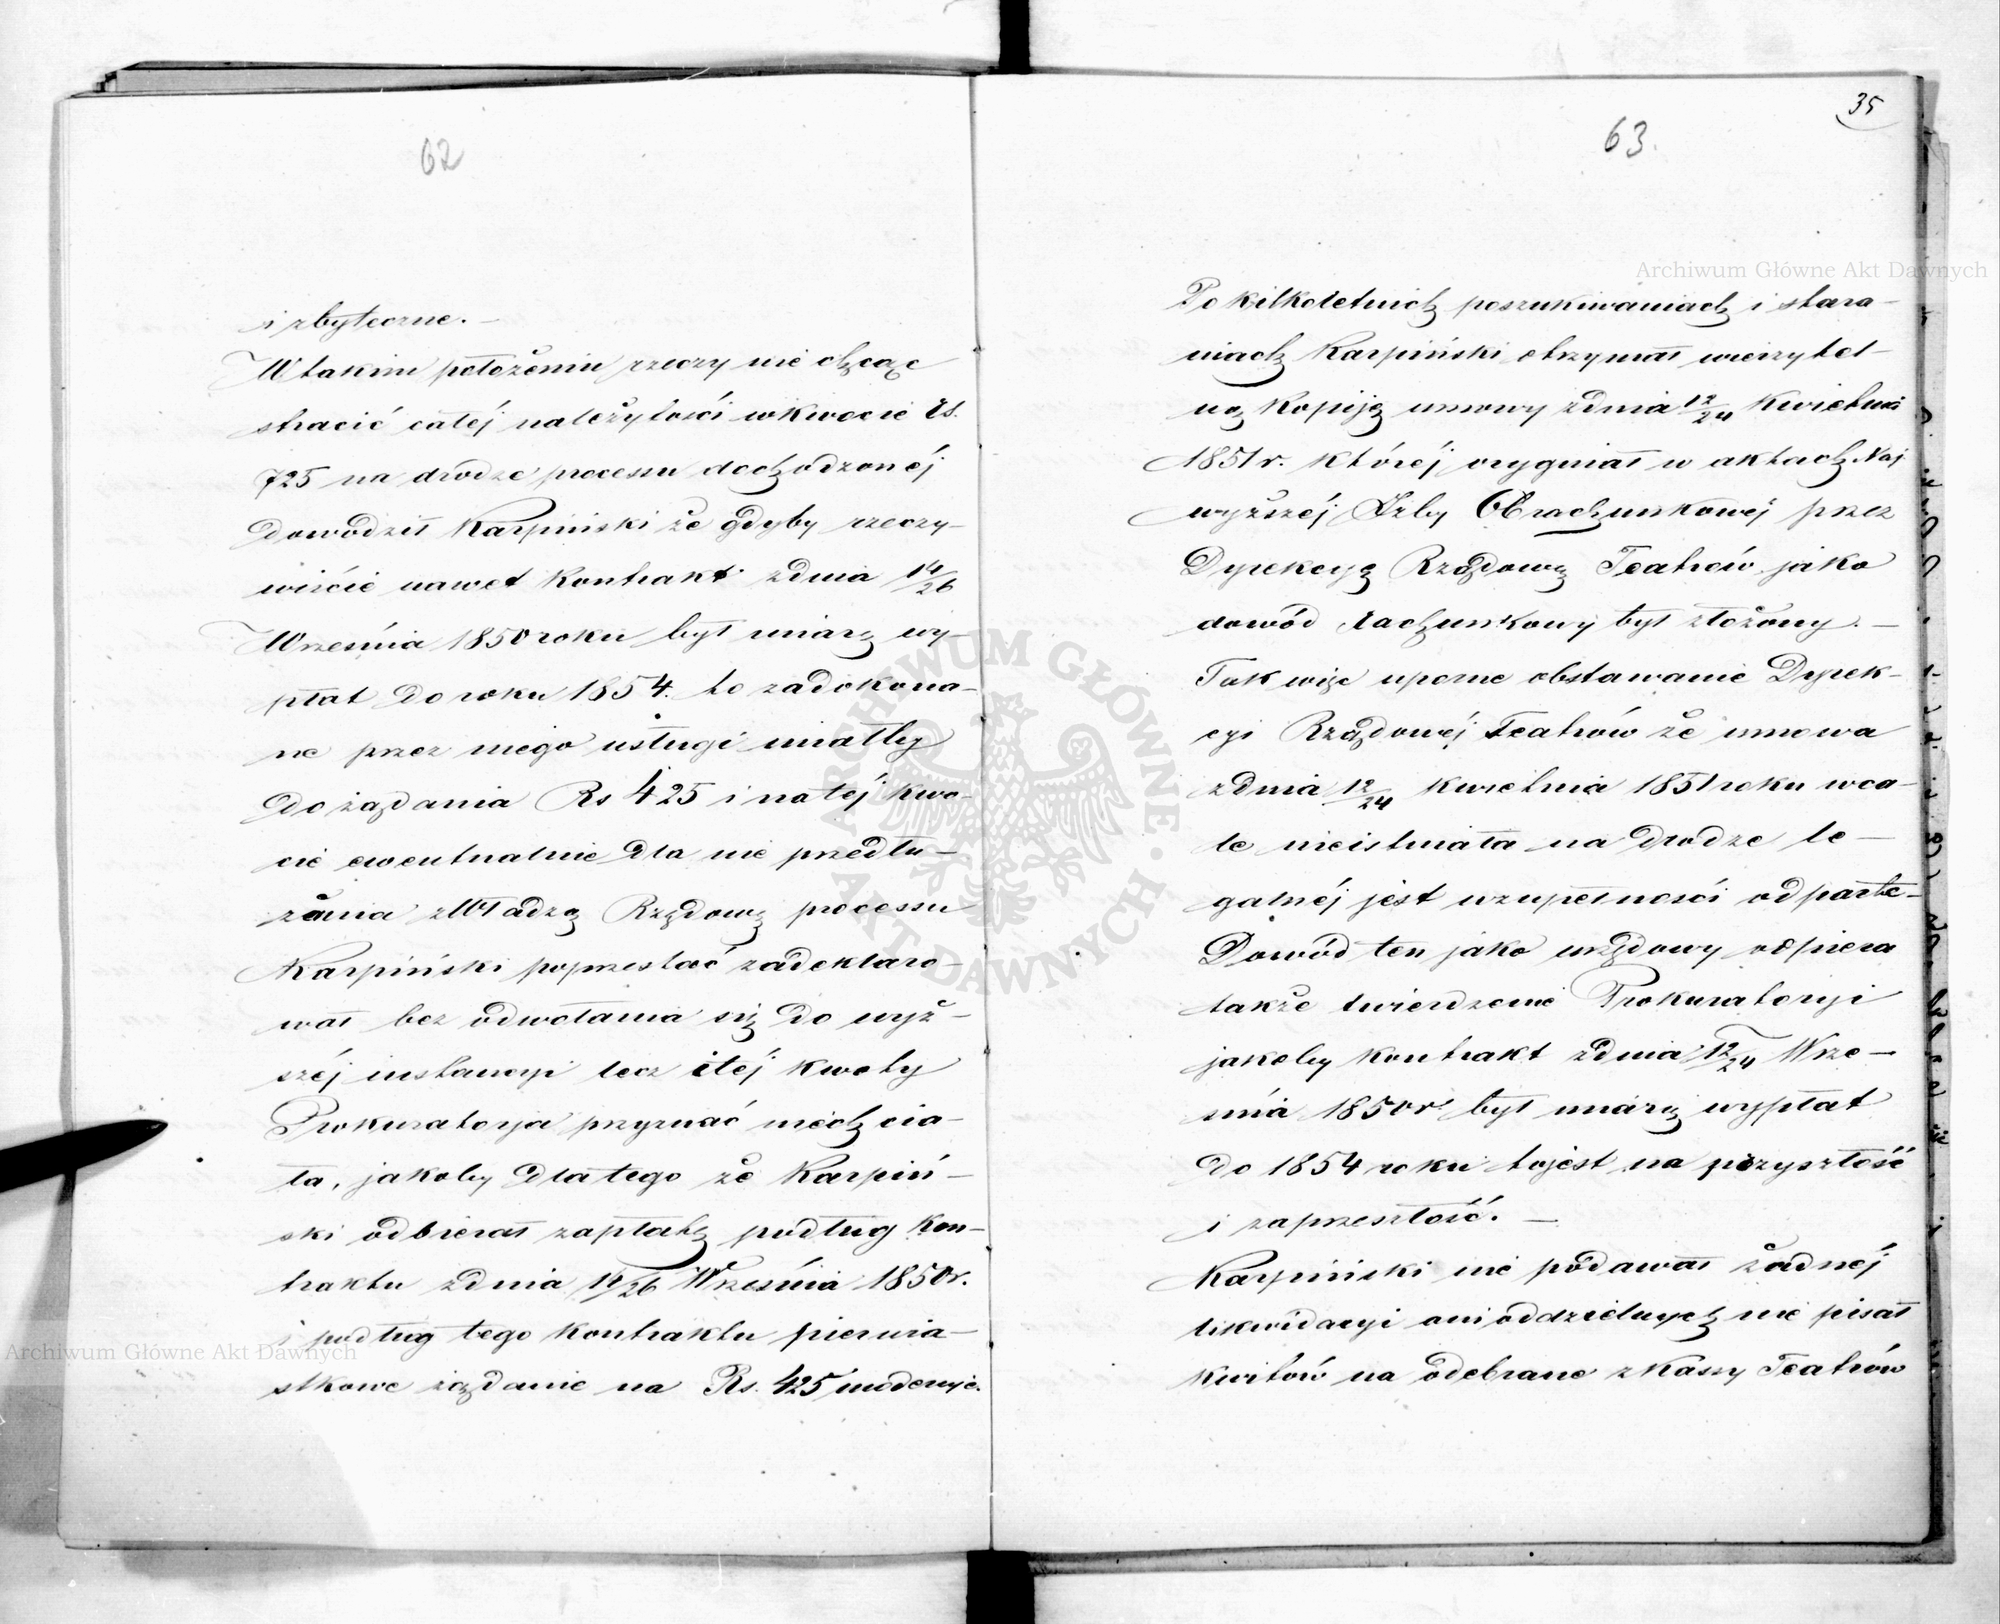 62
i zbyteczne. —
W takim położeniu rzeczy nie chcąc
stracić całéj należytości w kwocie Rs.
725 na drodze processu dochodzonéj
dowodził Karpiński że gdyby rzeczy-
wiście nawet kontrakt z dnia 14/26
Września 1850 roku był miarą wy-
płat do roku 1854. to za dokona-
ne przez niego usługi miałby
do żądania Rs 425 i na téj kwo-
cie ewentualnie dla nie przedłu-
żania z Władzą Rządową processu
Karpiński poprzestać zadeklaro-
wał bez odwołania się do wyż-
széj instancyi lecz i téj kwoty
Prokuratorya przyznać niechcia-
ła, jakoby dla tego że Karpiń-
ski odbierał zapłatę podług kon-
traktu z dnia 14/26 Września 1850r.
i podług tego kontraktu pierwia-
stkowe żądanie na Rs. 425 moderuje.
35
63.
Po kilkoletnich poszukiwaniach i stara-
niach Karpiński otrzymał wierzytel-
ną kopiją umowy z dnia 12/24 Kwietnia
1851 r. któréj oryginał w aktach Naj
wyższéj Izby Obrachunkowéj przez
Dyrekcyą Rządową Teatrów jako
dowód rachunkowy był złożony. —
Tak więc uporne obstawanie Dyrek-
cyi Rządowéj Teatrów że umowa
z dnia 12/24 Kwietnia 1851 roku wca-
le nieistniała na drodze le-
galnéj jest w zupełności odparte —
Dowód ten jako urzędowy odpiera
także twierdzenie Prokuratoryi
jakoby kontrakt z dnia 12/24 Wrze-
śnia 1850 r był miarą wypłat
do 1854 roku to jest na przyszłość
i zaprzeszłość. —
Karpiński nie podawał żadnéj
likwidacyi ani oddzielnych nie pisał
kwitów na odebrane z Kassy Teatrów
Archiwum Główne Akt Dawnych
ARCHIWUM GŁÓWNE AKT DAWNYCH
Archiwum Główne Akt Dawnych